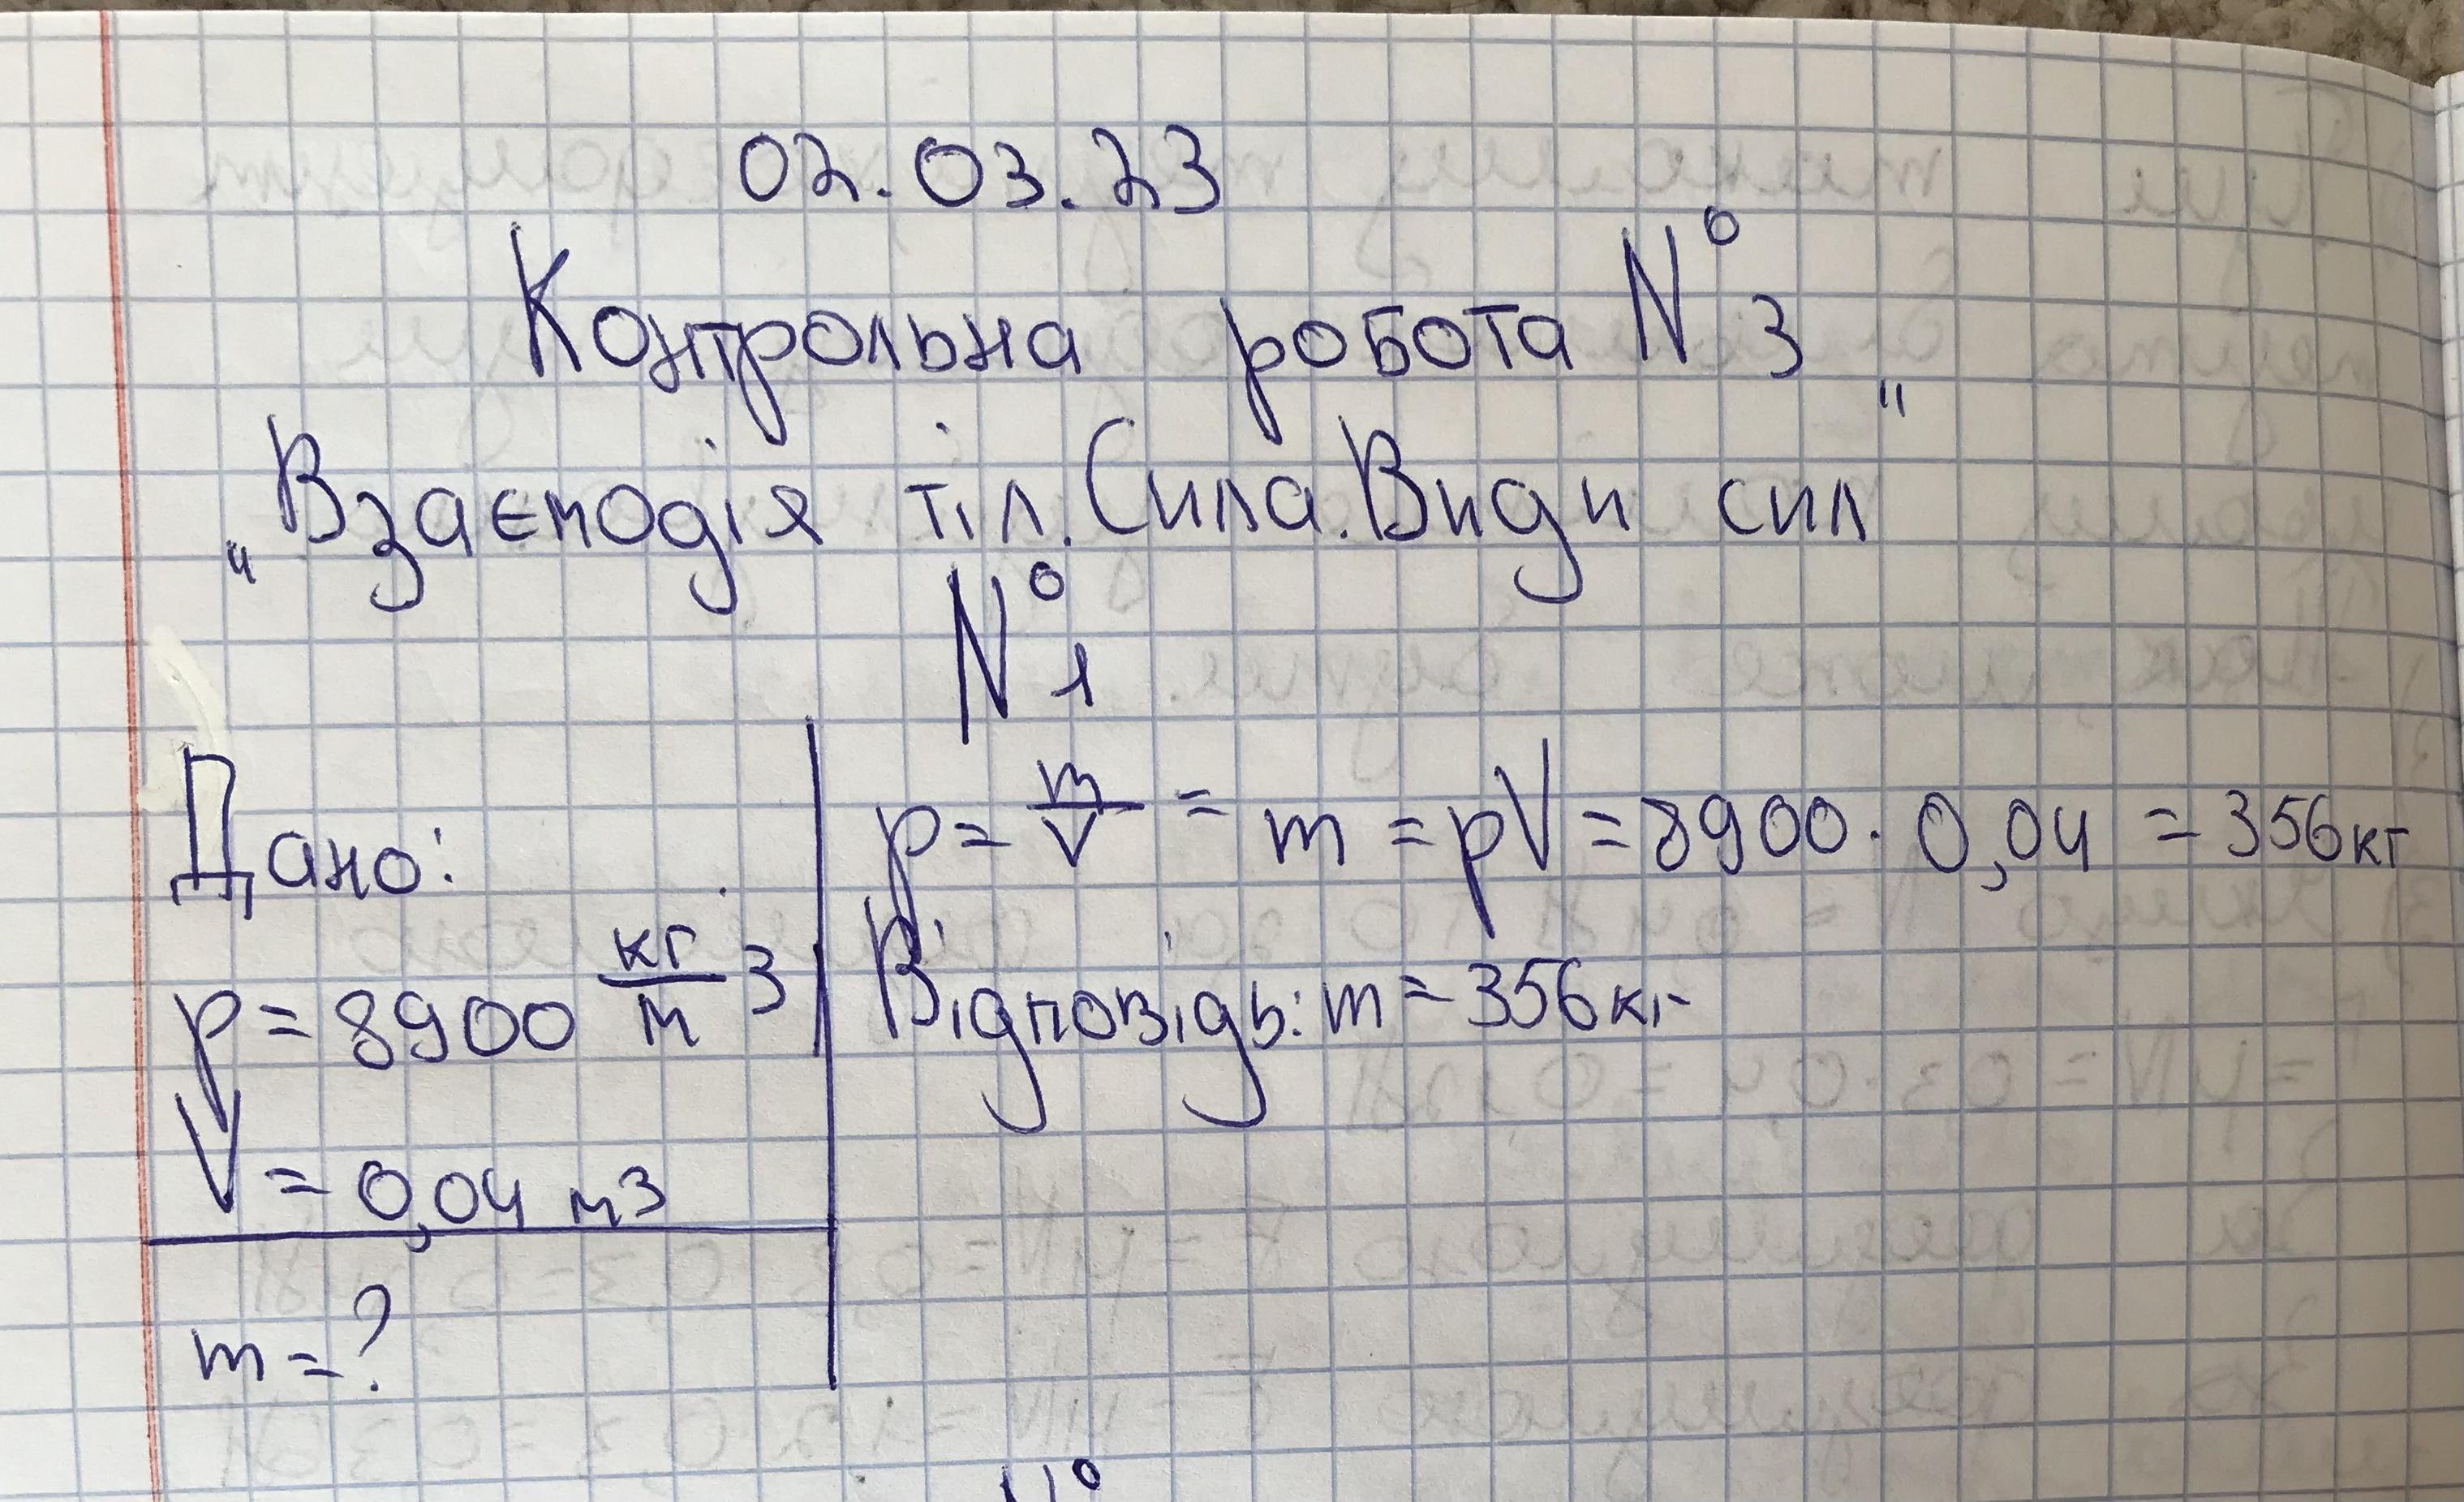 02.03.23
Контрольна робота № 3
„Взаємодія тіл. Сила. Види сил"
№ 1
Дано:
p = 8900 кг/м 3
V = 0,04 м3
m = ?
p = m/V = m = pV = 8900 · 0,04 = 356кг
Відповідь: m = 356кг
№